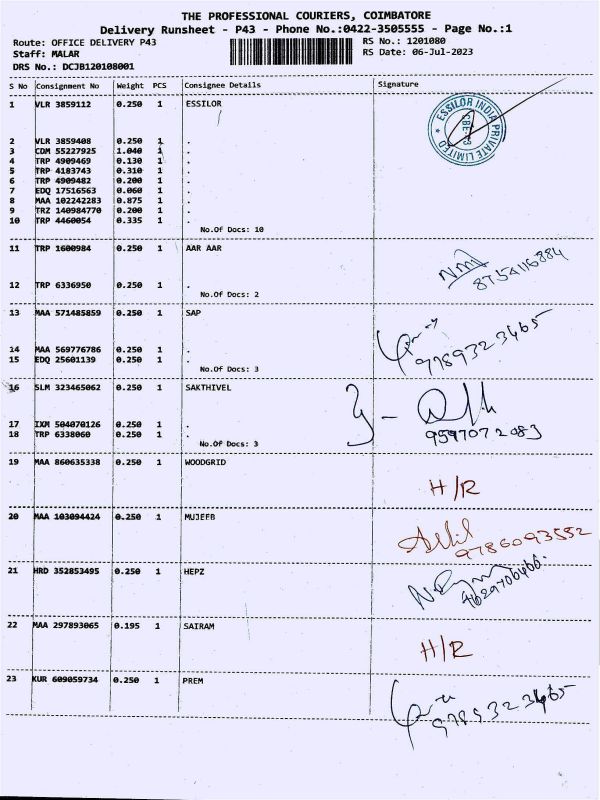 THE PROFESSIONAL COURIERS, COIMBATORE
Delivery Runsheet - P43 - Phone No.:0422-3505555 - Page No.:1
Route: OFFICE DELIVERY P43 RS No.: 1201080
Staff: MALAR RS Date: 06-Jul-2023
DRS No.: DCJB120108001
S No Consignment No Weight PCS Consignee Details Signature
1 VLR 3859112 0.250 1 ESSILOR
ESSILOR INDIA PRIVATE LIMITED
2 VLR 3859408 0.250 1 .
3 CDM 55227925 1.040 1 .
4 TRP 4909469 0.130 1 .
5 TRP 4183743 0.310 1 .
6 TRP 4909482 0.200 1 .
7 EDQ 17516563 0.060 1 .
8 MAA 102242283 0.875 1 .
9 TRZ 140984770 0.200 1 .
10 TRP 4460054 0.335 1 .
No.Of Docs: 10
11 TRP 1600984 0.250 1 AAR AAR
8754116884
12 TRP 6336950 0.250 1 .
No.Of Docs: 2
13 MAA 571485859 0.250 1 SAP
9789323465
14 MAA 569776786 0.250 1 .
15 EDQ 25601139 0.250 1 .
No.Of Docs: 3
16 SLM 323465062 0.250 1 SAKTHIVEL
17 IXM 504070126 0.250 1 .
18 TRP 6338060 0.250 1 .
9597072083
No.Of Docs: 3
19 MAA 860635338 0.250 1 WOODGRID
H/R
20 MAA 103094424 0.250 1 MUJEEB
9786093552
21 HRD 352853495 0.250 1 HEPZ
22 MAA 297893065 0.195 1 SAIRAM
H/R
23 KUR 609059734 0.250 1 PREM
9789323465